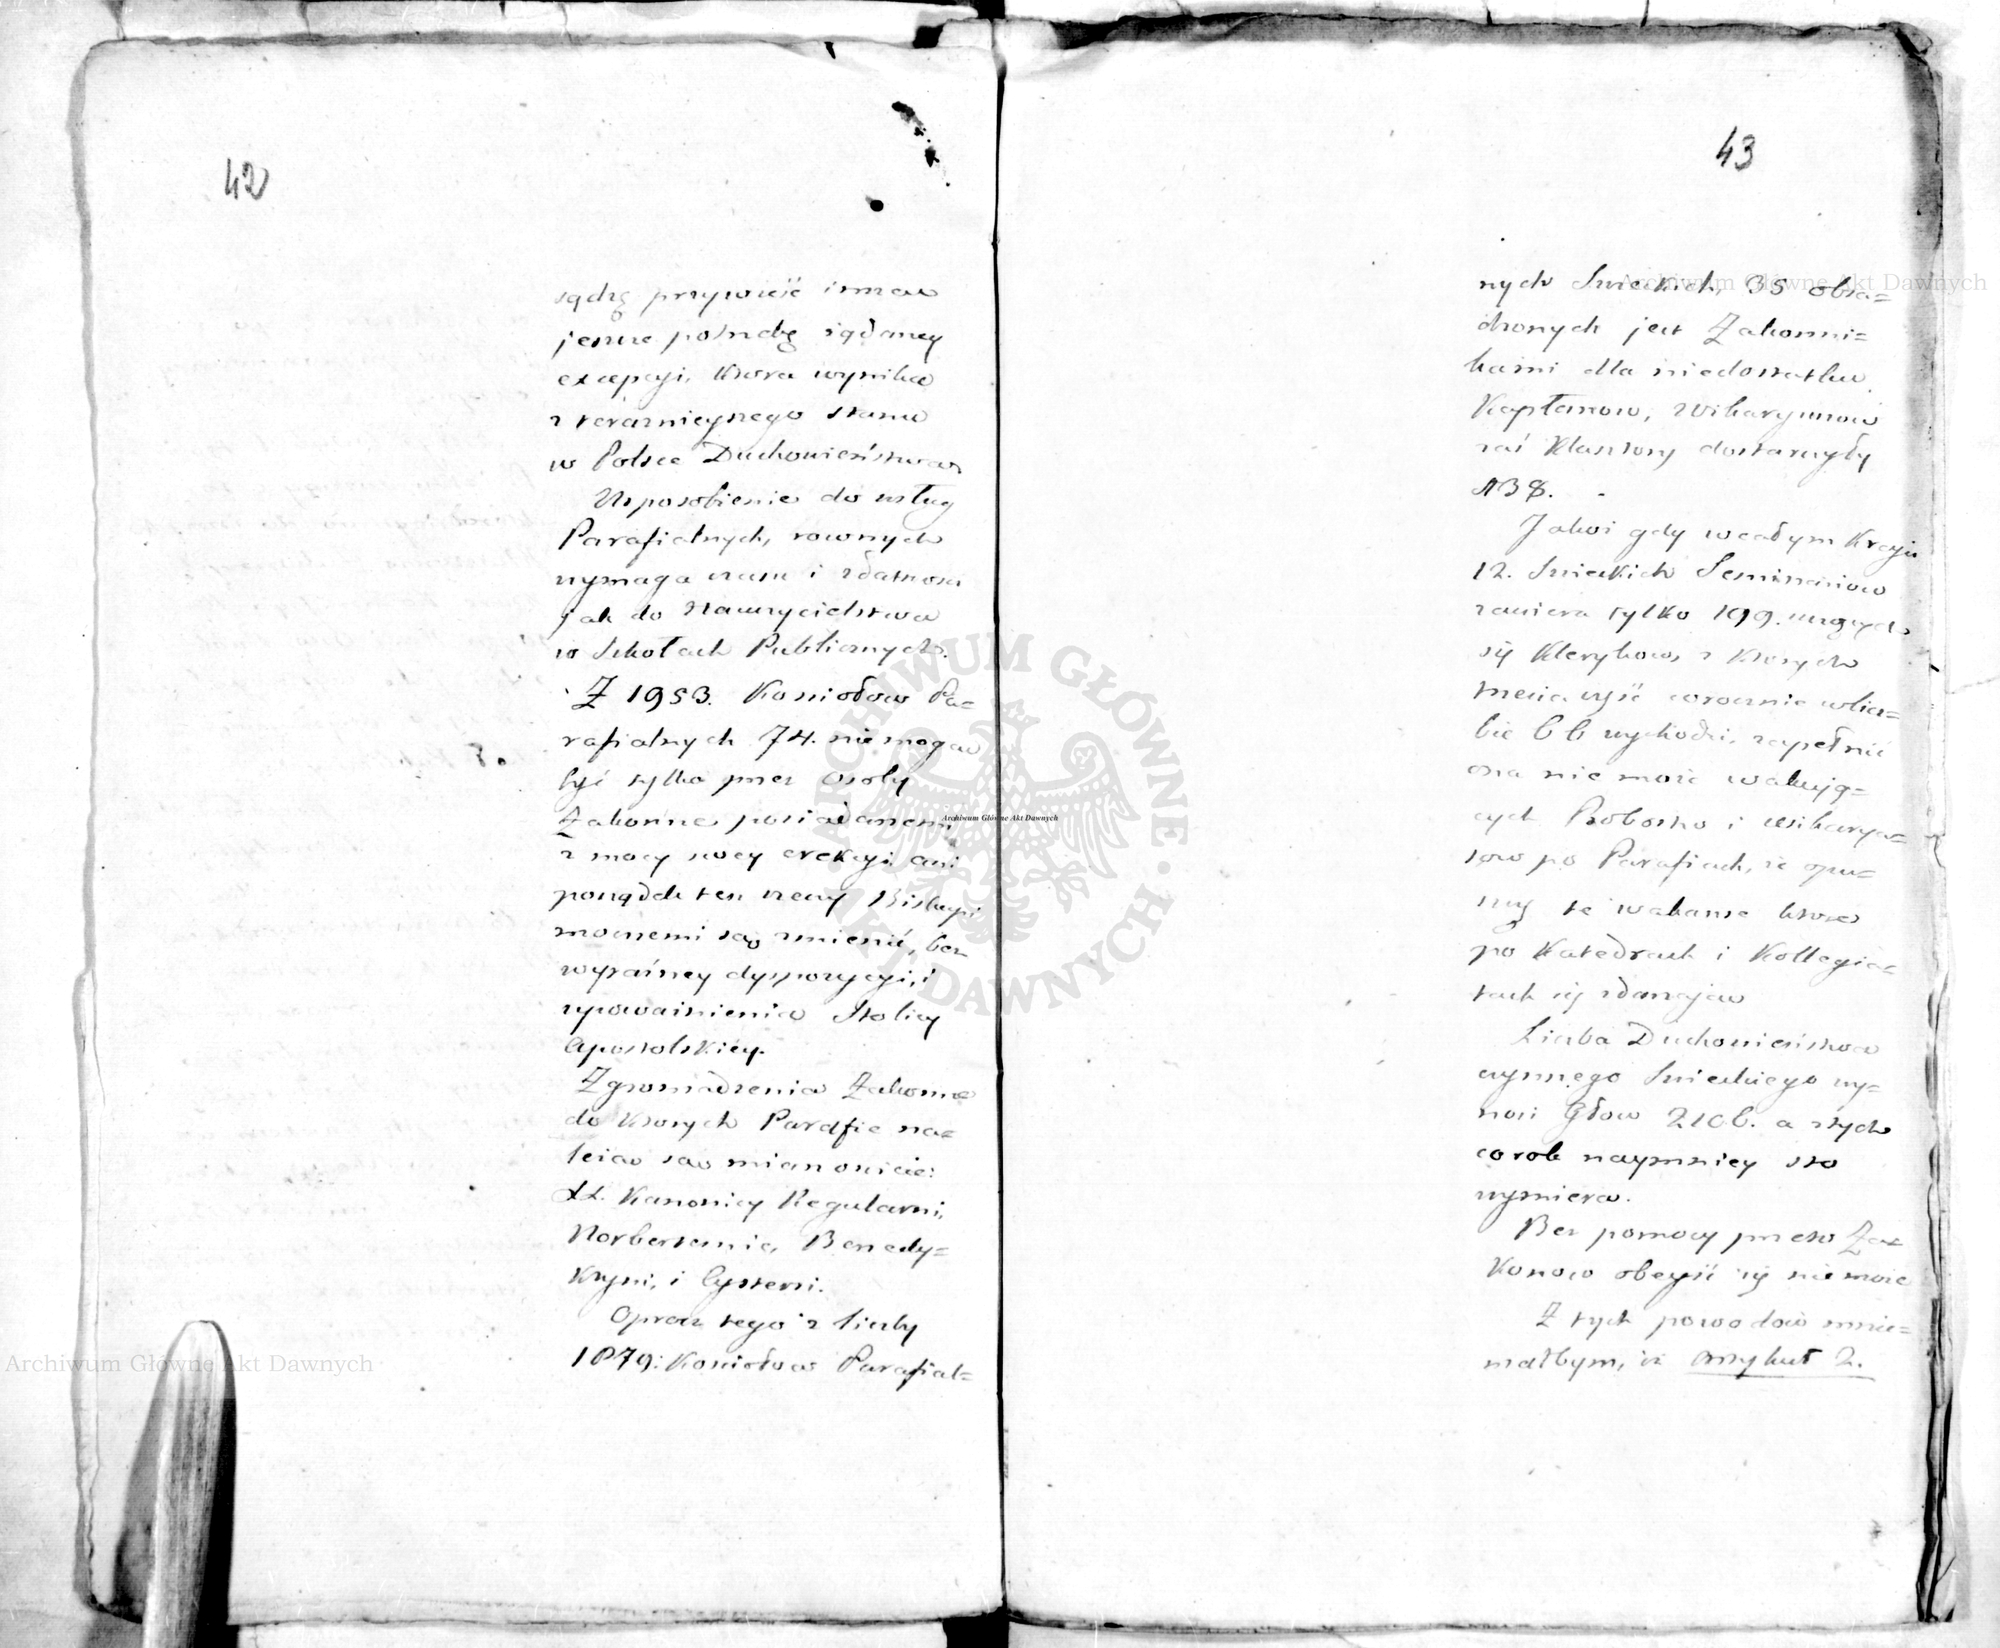 42
sądzę przywieść inną
jeszcze potrzebę żądaney
excepcyi, ktora wynika
z teraznieyszego stanu
w Polsce Duchowieństwa
Usposobienie do usług
Parafialnych, rownych
wymaga czasu i zdatnosci
jak do Nauczycielstwa
w Szkołach Publicznych.
Z 1953. Kosciołow Pa=
rafialnych 74. nie mogą
być tylko przez Osoby
Zakonne posiadanemi
z mocy swey erekcyi, ani
porządek ten rzeczy Biskupi
mocnemi są zmienić, bez
wyraźney dyspozycyi, i
upoważnienia Stolicy
Apostolskiey.
Zgromadzenia Zakonne
do ktorych Parafie na=
leżą są mianowicie:
XX. Kanonicy Regularni,
Norbertanie, Benedy=
ktyni, i Cystersi.
Oprocz tego z liczby
1879. Kosciołow Parafial=
43
nych Swieckich, 35 obsa=
dzonych jest Zakonni=
kami dla niedostatku
Kapłanow, Wikaryuszow
zaś Klasztory dostarczyły
138.
Jakoż gdy w całym Kraju
12. Swieckich Seminariow
zawiera tylko 199. uczących
się Klerykow, z ktorych
trzecia część corocznie w licz=
bie 66 wychodzi, zapełnić
ona nie może wakują=
cych Probostw i Wikarya=
tow po Parafiach, że opu=
szczę te wakanse ktore
po Katedrach i Kollegia=
tach się zdarzają
Liczba Duchowieństwa
czynnego Swieckiego wy=
nosi Głow 2106. a z tych
co rok naymniey sto
wymiera.
Bez pomocy przeto Za=
konow obeyść się nie może
Z tych powodow mnie=
małbym, iż Artykuł 2.
Archiwum Główne Akt Dawnych
Archiwum Główne Akt Dawnych
Archiwum Główne Akt Dawnych
ARCHIWUM GŁÓWNE · AKT DAWNYCH ·